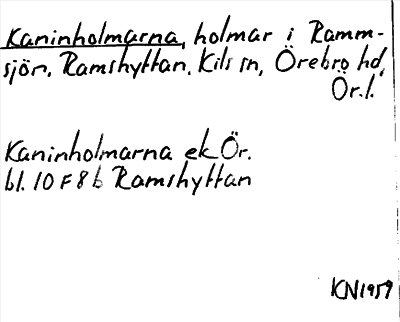 Kaninholmarna, holmar i Ramm-
sjön, Ramshyttan, Kils sn, Örebro hd,
Ör.l.
Kaninholmarna ek Ör.
bl. 10 F 8 b Ramshyttan
KN1959